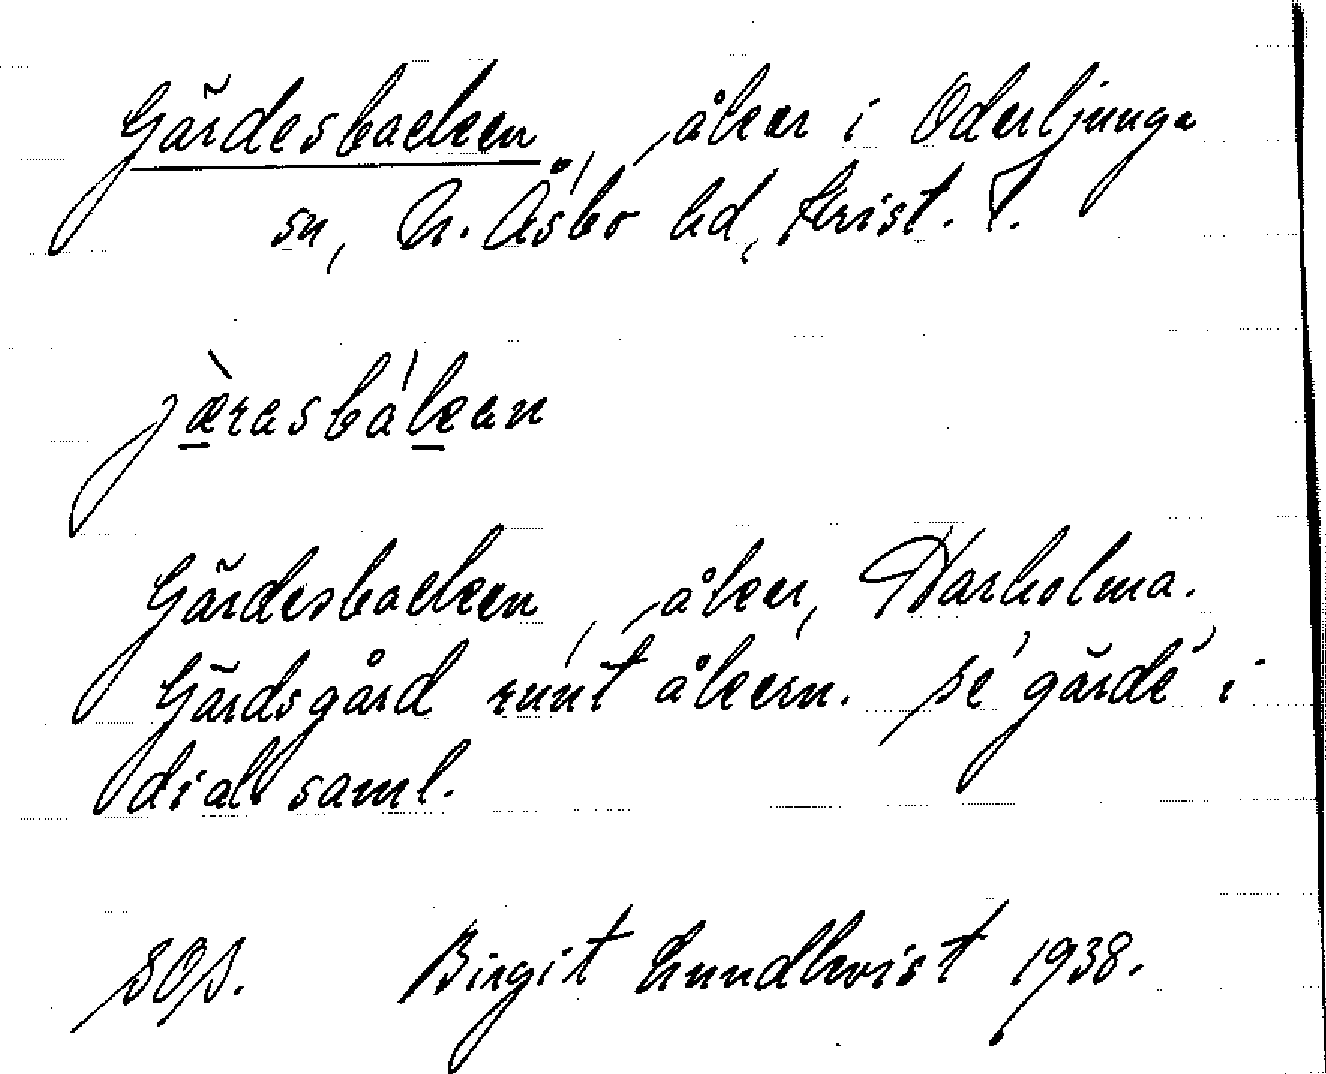 Gärdesbacken, åker i Oderljunga
sn, N. Åsbo hd, Krist. l.
jæ̀rasbákan
Gärdesbacken, åker, Harholma.
Gärdsgård runt åkern. se ́gärde ́ i
dial saml.
Birgit Lundkvist 1938.